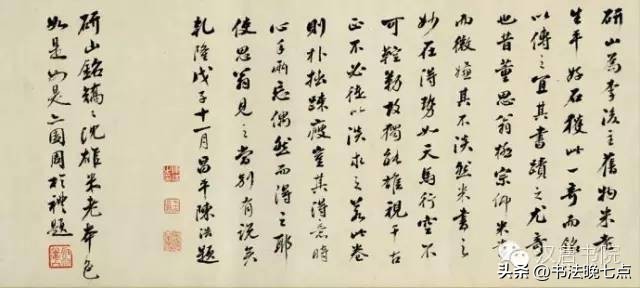 研山為李後主舊物米老
生平好石獲此一奇而銘
以傳之宜其書蹟之尤奇
也昔董思翁極宗仰米書
而微嫌其不淡然米書之
妙在得勢如天馬行空不
可鞚勒故獨能雄視千古
正不必徒以淡求之若此卷
則朴拙疎瘦豈其得意時
心手兩忘偶然而得之耶
使思翁見之當別有說矣
乾隆戊子十一月昌平陳浩題
研山銘沈雄米老本色
如是如是周於禮題
汉唐书院
头条 @书法晚七点